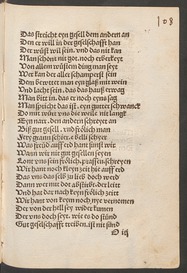 108
Das streicht eyn gesell dem andern an
Den er will in der gesellschafft han
Der wüst will sein, vnd das nit kan
Man schönt nit got noch erberkeyt
Von allem wüsten ding man seyt
Wer kan der aller schamperst sein
Dem bewttet man eyn glaß mit wein
Vnd lacht sein, das das hauß erwag
Man bitt in, das er noch eyns sag
Man spricht das ist eyn guter schwanck
Do mit würt vns die weile nit langk
Eyn narr, den andern schreyet an
Biß gut gesell, vnd frölich man
Was freüd auff erd hant sunst wir
Wann wir nit gut gesellen syen
Wir hant noch kleyn zeit hie auff erd
Das vns das selb zu lieb doch werd
Dann wer mit dot abstirbt, der leit
Vnd hat dar nach kein frölich zeit
Wir hant von keym noch nye vernomen
Der von der hell sey wider kumen
Der vns doch seyt, wie es do stünd
Gut gesellschafft treiben, ist nit sünd